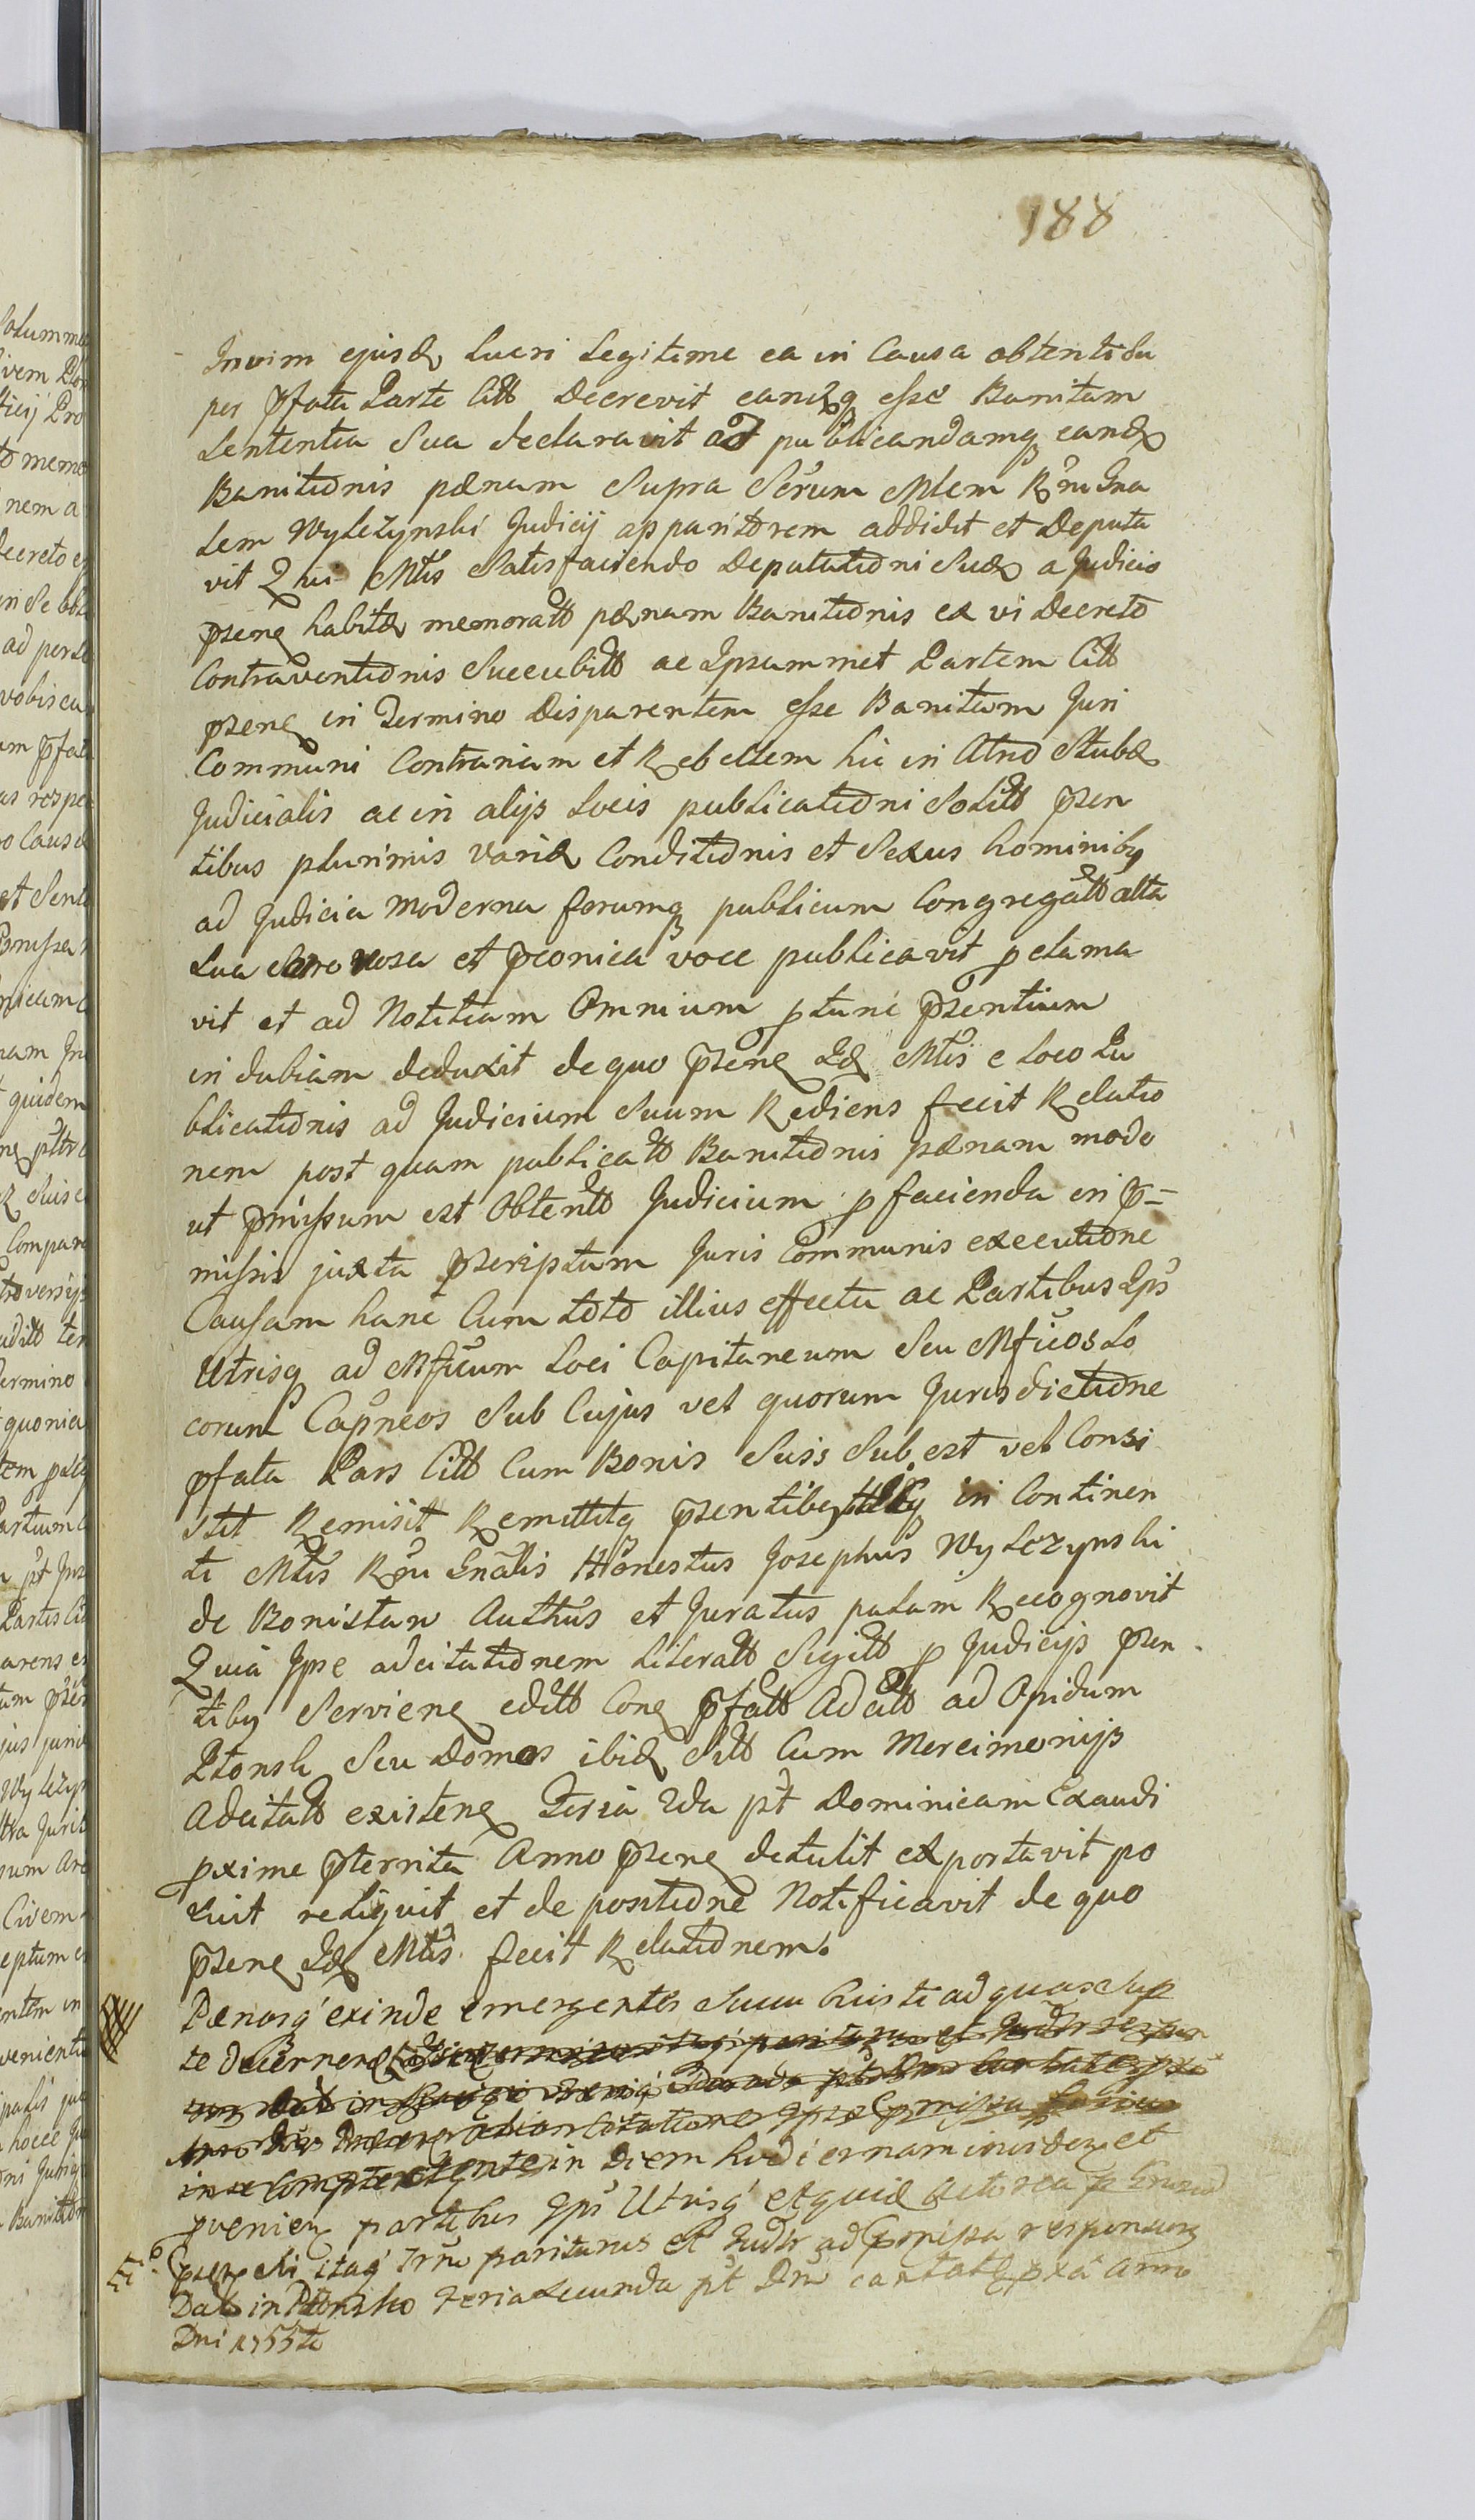 188
Invim ejusd Lucri Legitime ea in Causa obtenti Su
per pfata Parte Citt Decrevit eandq esse Banitam
Sententia Sua declaravit ad publicandamq eand
Banitionis pænam Supra Scrum Mlem Rni Gna
lem Wylezynski Judicij apparitorem addidit et Deputa
vit Qui Mtis Satisfaciendo Deputationi Suæ a Judicio
psene habitæ memoratt pænam Banitionis ex vi Decreto
Contraventionis Succubitt ac Ipsammet Partem Citt
psene in Termino Disparentem esse Banitam Juri
Communi Contrariam et Rebellem hic in Atrio Stubæ
Judicialis ac in alijs Locis publicationi Solitt psen
tibus plurimis variæ Conditionis et Sexus hominiby
ad Judicia moderna forumq publicum Congregatt alta
Sua et pconica voce publicavit pclama
vit et ad Notitiam Omnium ptunc psentium
indubiam deduxit de quo psene Id Mtis e Loco Pu
blicationis ad Judicium Suum Rediens fecit Relatio
nem post quam publicatt Banitionis pænam modo
ut pmissum est Obtentt Judicium p facienda in p=
missis juxta pscriptum Juris Communis executione
Causam hanc Cum toto illius effectu ac Partibus Ips
Utrisq ad Mficum Loci Capitaneum Seu Mficos Lo
corum Capneos Sub Cujus vel quorum Jurisdictione
pfata Pars Citt Cum Bonis Suis Subest vel Consi
stit Remisit Remittitq psentiby in Continen
ti Mtis Rni Gnalis Honestus Josephus Wylczynski
de Bonistaw Authus et Juratus palam Recognovit
Quia Ipse adcitationem Literatt Sigitt p Judicijs psen
tiby Serviene editt Cone pfatt Adcitt ad Opidum
Plonsk Seu Domos ibid Sitt Cum Mercimonijs
Adcitatt existene Feria 2da pt Dominicam Exaudi
pxime pterrita Anno psene detulit et portavit po
suit reliquit et de positione Notificavit de quo
psene Id Mtis fecit Relationem.
Pænasq exinde emergentes ad quas
te decernend
in diem hodiernam
pvenien partibus Ips Utrisq et quid Actorea
itaq pariturus et ad pmissa responsurg
Dat in Plonsko Feria Secunda pt Dm cantate pxa Anno
Dni 1755to